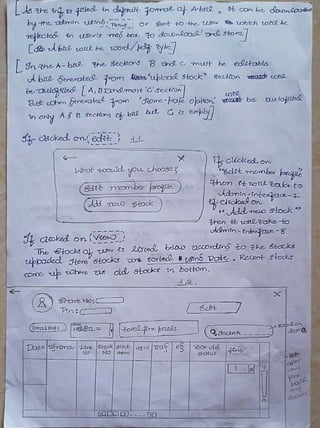 [As the info is filled in default format of A-bill, It can be downloaded
by the admin using (Print) or sent to the user which would be
reflected in user's box to download and store]
[A-bill would be word/pdf type]
[In the A-bill the sections B and C must be editable
A bill generated from "upload stock" section would
be autofilled [A, B and most C section]
But when generated from "Home-page option" would be autofilled
in only A & B sections of bill but C is empty]
If clicked on (edit) 11
What would you choose?
Edit member profile
Add new stock
If clicked on
"Edit member profile"
then it will take to
Admin-Interface-7
If clicked on
"Add new stock"
then it will take to
Admin-Interface-8
If clicked on (View)
The stocks of user is listed below according to the stocks
uploaded. Here stocks are sorted using Date. Recent stocks
come up when as old stocks in bottom.
12
Share No:
Pin:
Edit
total fine paid:
Search
Date
Stock No
Stock
HSN
Bags
KG
status